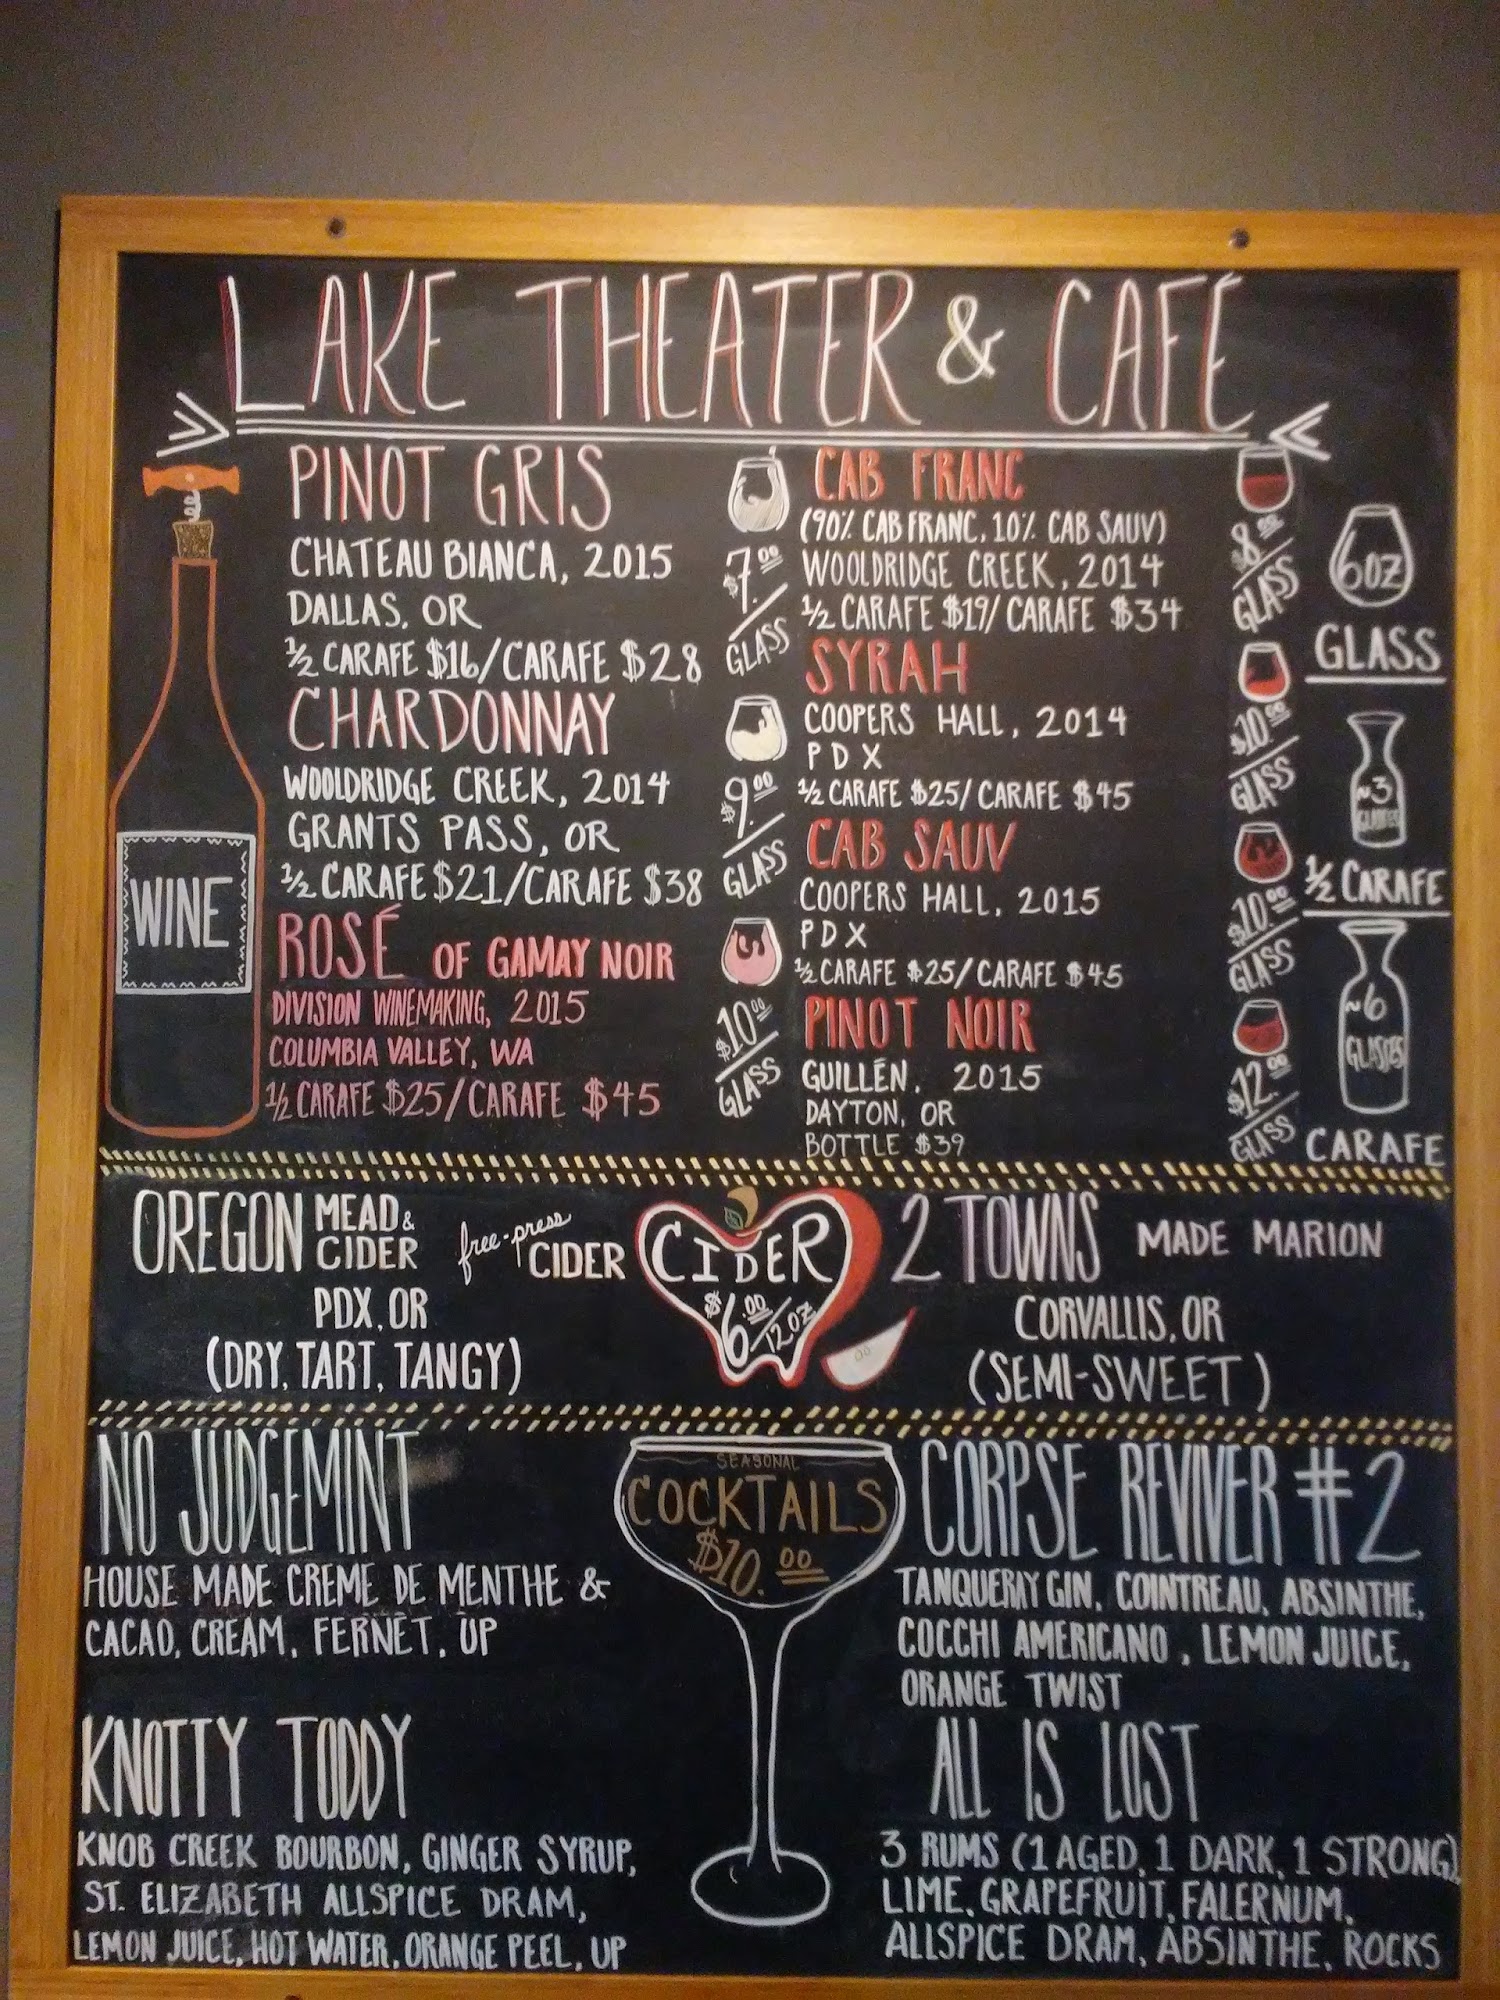 LAKE THEATER & CAFÉ
WINE
PINOT GRIS
CHATEAU BIANCA, 2015
DALLAS, OR
½ CARAFE $16/CARAFE $28
$7.00/GLASS
CHARDONNAY
WOOLDRIDGE CREEK, 2014
GRANTS PASS, OR
½ CARAFE $21/CARAFE $38
$9.00/GLASS
ROSÉ OF GAMAY NOIR
DIVISION WINEMAKING, 2015
COLUMBIA VALLEY, WA
½ CARAFE $25/CARAFE $45
$10.00/GLASS
CAB FRANC
(90% CAB FRANC, 10% CAB SAUV)
WOOLDRIDGE CREEK, 2014
½ CARAFE $19/ CARAFE $34
$8.00/GLASS
SYRAH
COOPERS HALL, 2014
PDX
½ CARAFE $25/ CARAFE $45
$10.00/GLASS
CAB SAUV
COOPERS HALL, 2015
PDX
½ CARAFE $25/ CARAFE $45
$10.00/GLASS
PINOT NOIR
GUILLÉN, 2015
DAYTON, OR
BOTTLE $39
$12.00/GLASS
6OZ
GLASS
~3
GLASSES
½ CARAFE
~6
GLASSES
CARAFE
OREGON MEAD & CIDER free-press CIDER
PDX, OR
(DRY, TART, TANGY)
CIDER
$6.00/12OZ
2 TOWNS MADE MARION
CORVALLIS, OR
(SEMI-SWEET)
SEASONAL
COCKTAILS
$10.00
NO JUDGEMINT
HOUSE MADE CREME DE MENTHE &
CACAO, CREAM, FERNET, UP
KNOTTY TODDY
KNOB CREEK BOURBON, GINGER SYRUP,
ST. ELIZABETH ALLSPICE DRAM,
LEMON JUICE, HOT WATER, ORANGE PEEL, UP
CORPSE REVIVER #2
TANQUERAY GIN, COINTREAU, ABSINTHE,
COCCHI AMERICANO, LEMON JUICE,
ORANGE TWIST
ALL IS LOST
3 RUMS (1 AGED, 1 DARK, 1 STRONG),
LIME, GRAPEFRUIT, FALERNUM,
ALLSPICE DRAM, ABSINTHE, ROCKS